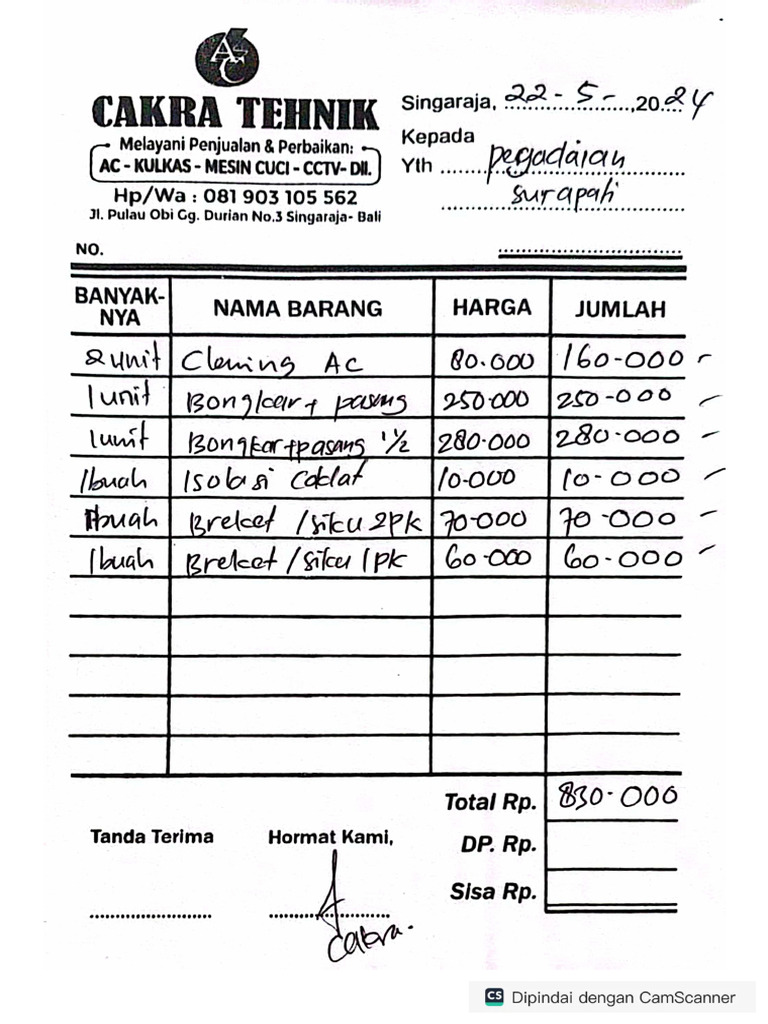 AC
CAKRA TEHNIK
Melayani Penjualan & Perbaikan:
AC - KULKAS - MESIN CUCI - CCTV- Dll.
Hp/Wa : 081 903 105 562
Jl. Pulau Obi Gg. Durian No.3 Singaraja- Bali
Singaraja, 22-5-, 2024
Kepada
Yth pegadaian
surapati
NO.
BANYAK-NYA NAMA BARANG HARGA JUMLAH
2 unit Clening AC 80.000 160-000
1 unit Bongkar + pasang 250.000 250-000
1 unit Bongkar+pasang 1½ 280.000 280-000
1 buah Isolasi Coklat 10.000 10-000
1 buah Breket / siku 2pk 70-000 70-000
1 buah Breket / siku 1pk 60-000 60-000
Total Rp. 830-000
Tanda Terima Hormat Kami, DP. Rp.
Sisa Rp.
Cakra.
CS Dipindai dengan CamScanner